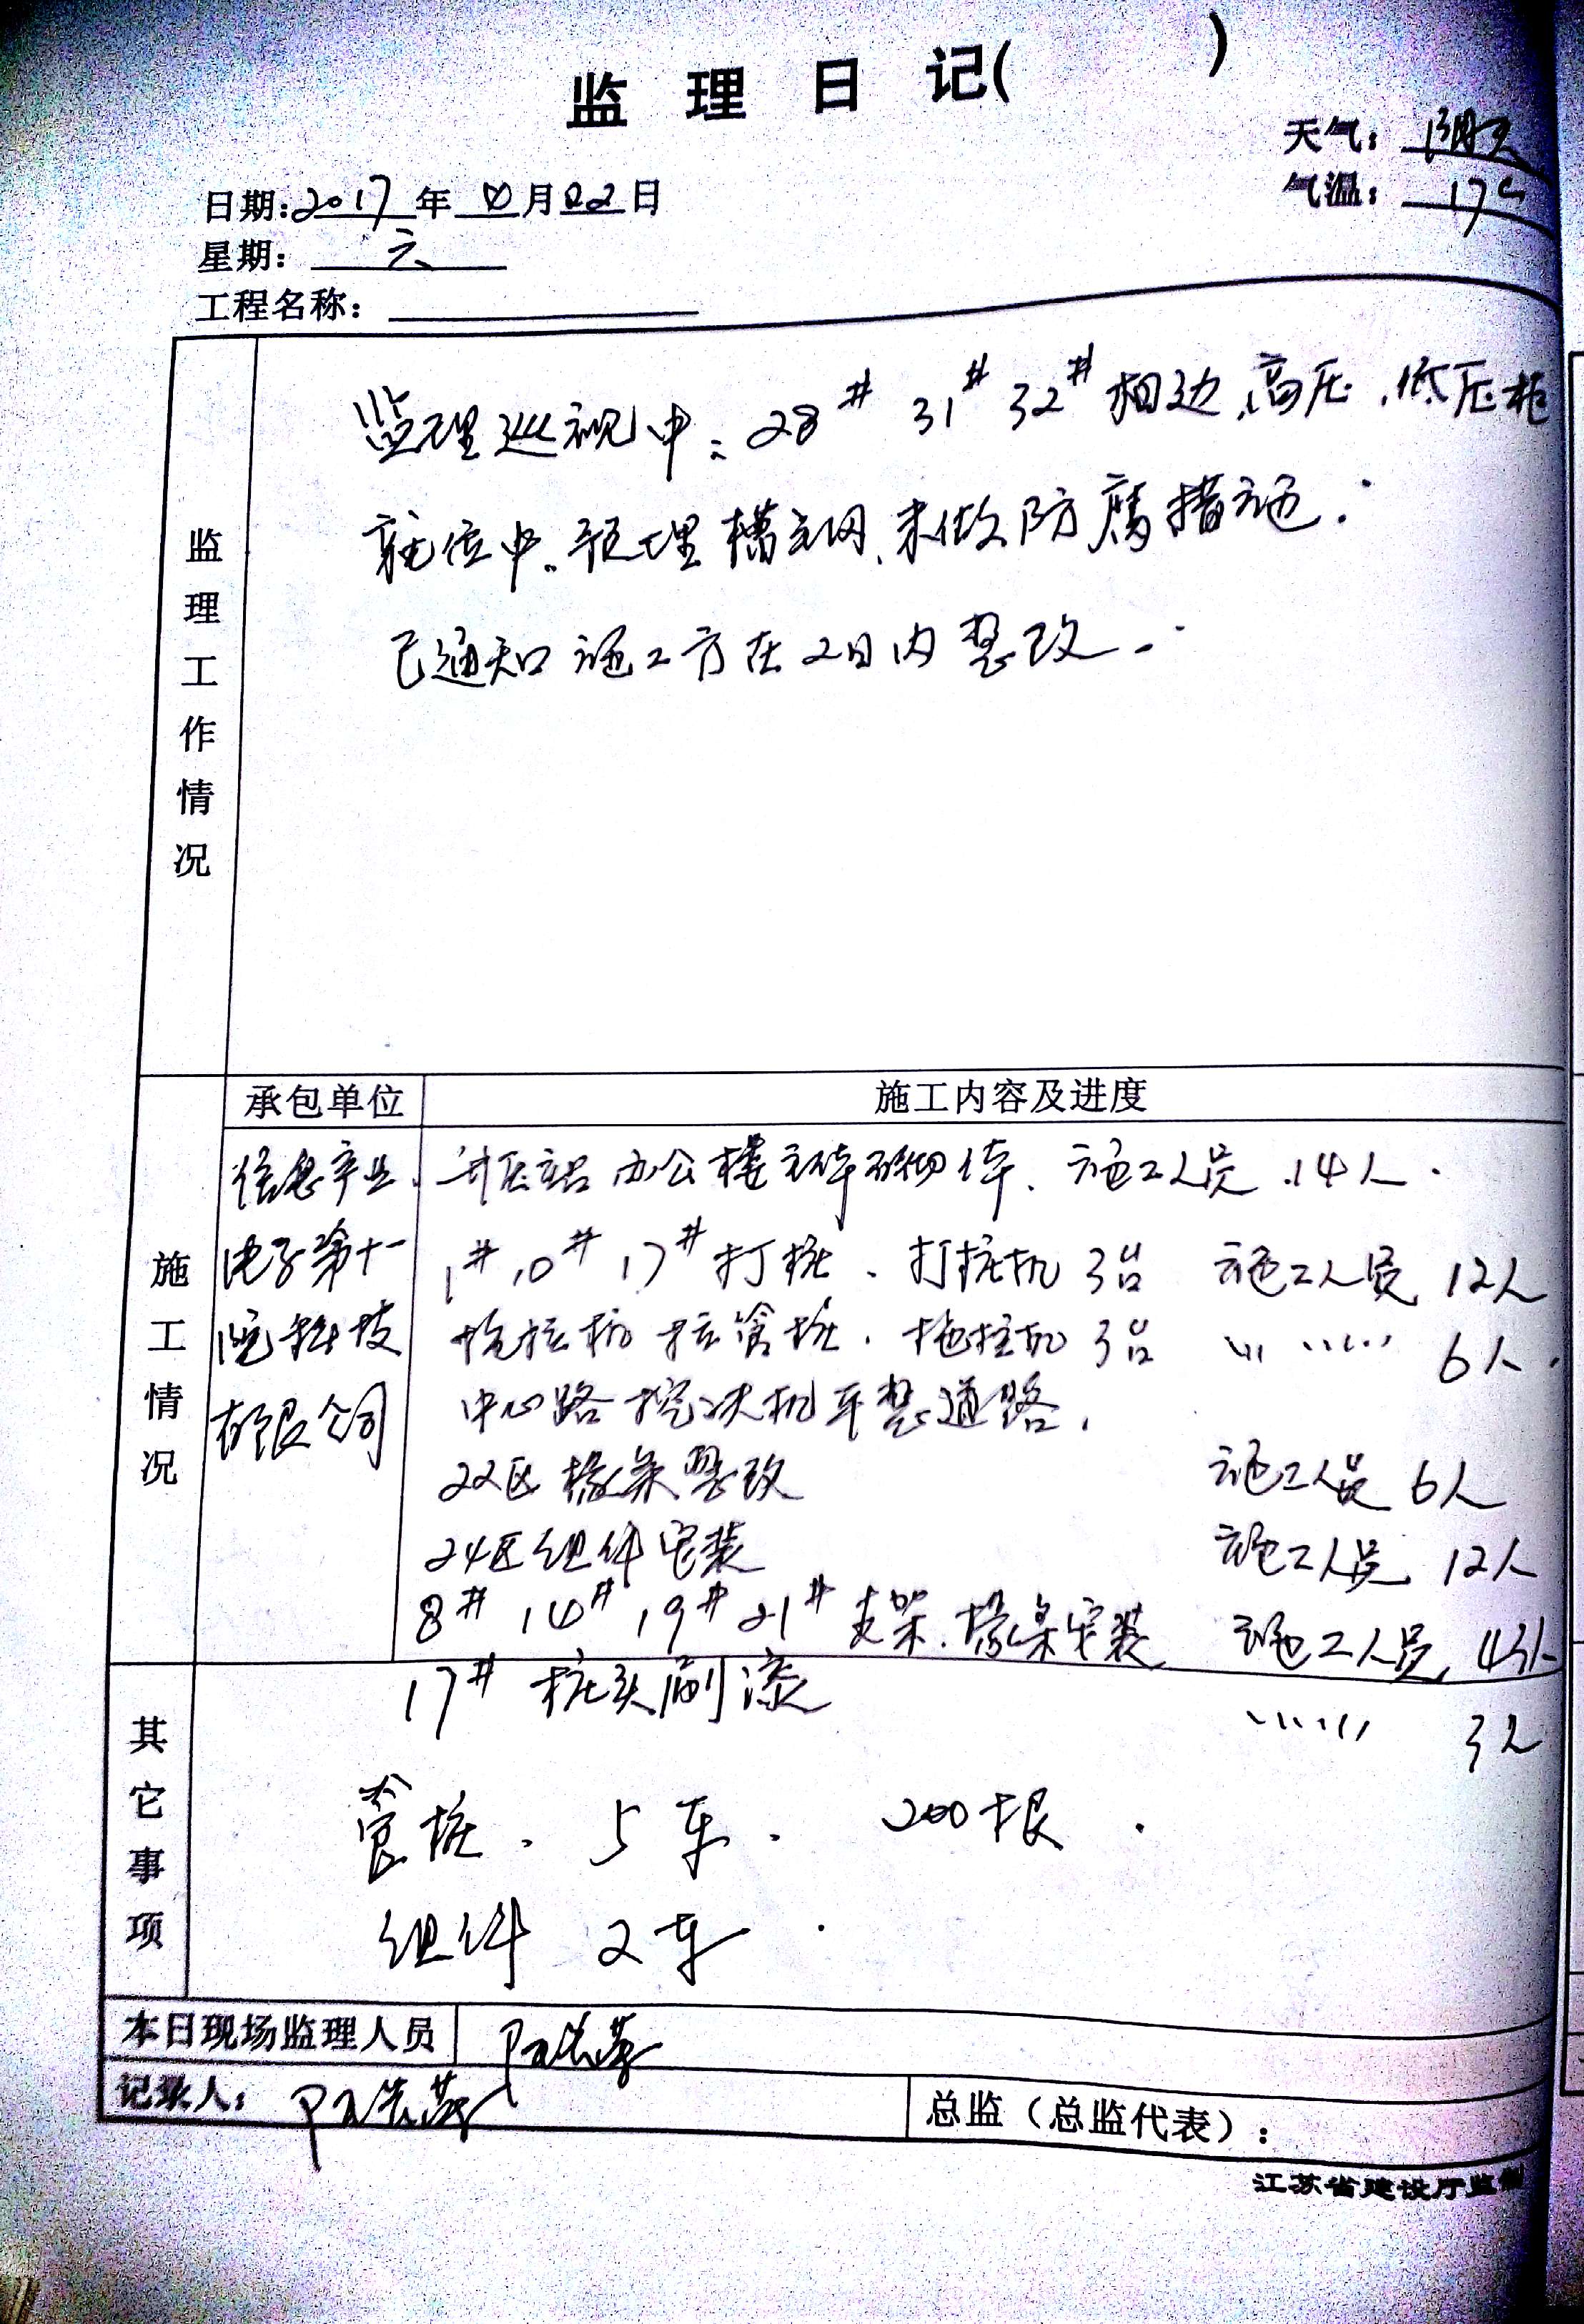 监理日记( )
天气：阴天
日期:2017年4月22日
气温：17℃
星期：六
工程名称：
监理工作情况
监理巡视中：28# 31# 32# 相边、高压、低压柜
就位中。预埋槽钢、未做防腐措施.
已通知施工方在2日内整改.
承包单位
施工内容及进度
施工情况
信息产业
电子第十一
院科技
有限公司
升压站办公楼 砌 、施工人员 14人.
1# 10# 17# 打桩、打桩机 3台 施工人员 12人
拖拉机 管桩、 3台 〃 6人.
中心路挖 机平整道路.
22区檩条整改 施工人员 6人
24区组件安装 施工人员 12人
8# 14# 19# 21# 支架.檩条安装 施工人员
17# 桩头刷漆 〃 3人
其它事项
管桩. 5车. 200根.
组件 2车.
本日现场监理人员
记录人：
总监（总监代表）：
江苏省建设厅监